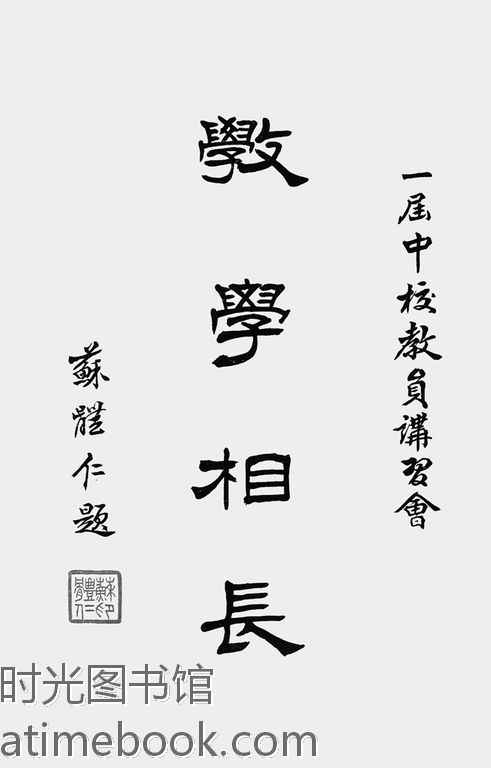 一屆中校教員講習會
斆學相長
蘇體仁題
蘇體仁印
时光图书馆
atimebook.com